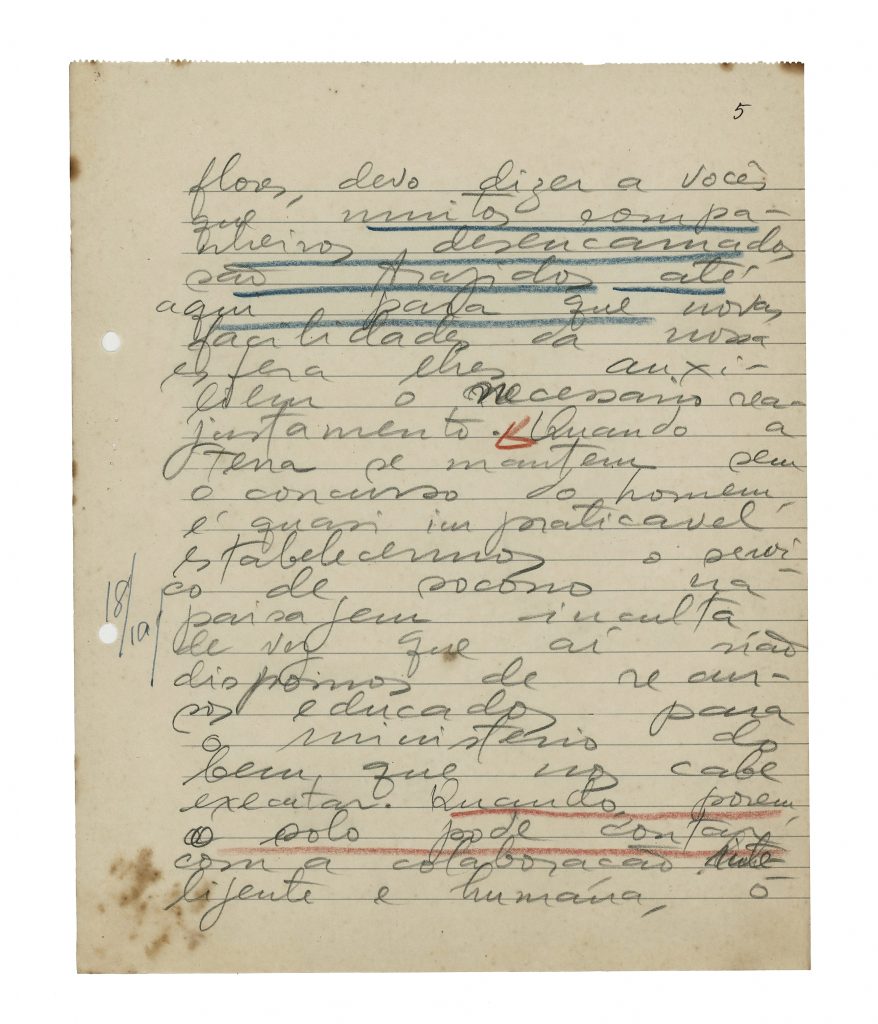 5
flores, devo dizer a vocês
que muitos compa-
nheiros desencarnados
são trazidos até
aqui para que novas
facilidades da nossa
esfera lhes auxi-
liem o necessario rea-
justamento. Quando a
Terra se mantem sem
o concurso do homem,
é quasi impraticavel
estabelecermos o servi-
ço de socorro na
paisagem inculta
de vez que aí não
dispomos de recur-
sos educados para
o ministerio do
bem, que nos cabe
executar. Quando, porem,
o solo pode contar,
com a colaboração inte-
ligente e humana, o
18/19/